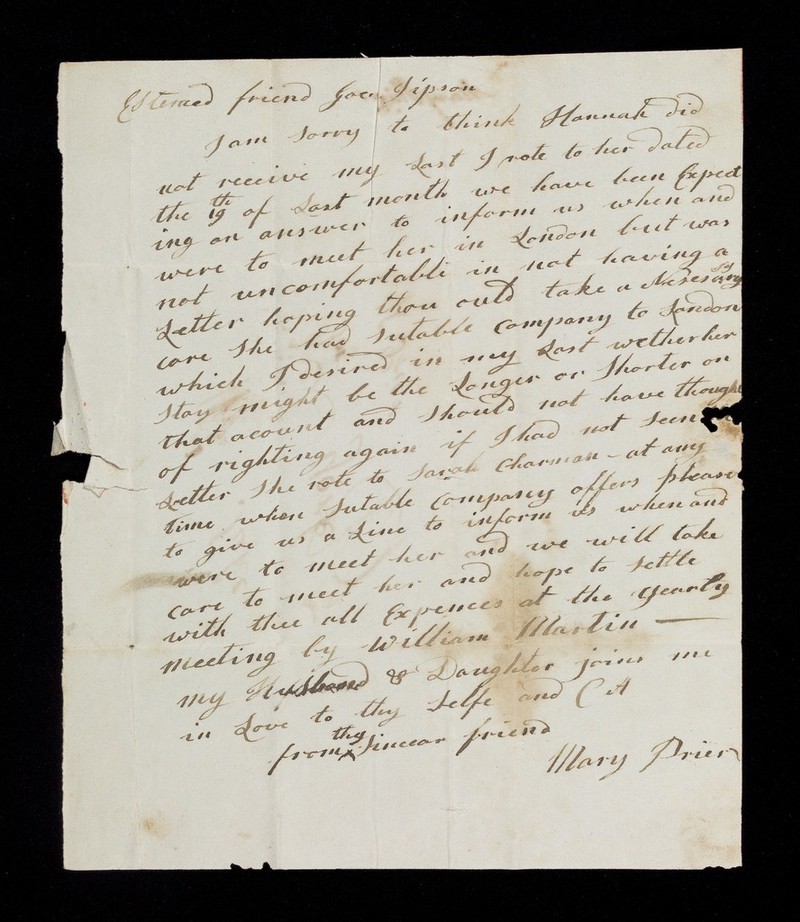 Estemed friend Jipson
I am sorry to think Hannah did
not receive my Last I rote to her dated
the 19th of Last month we have been Expect
ing an answer to inform us when and
were to meet her in London but was
not uncomfortable in not having a
Letter hoping thou ould take a Nesesary
care She had sutable company to London
which I desired in my Last wether her
stay might be the Longer or Shorter on
that acount and should not have thought
of righting again if I had not seen
Letter She rote to Sarah Charman - at any
time when sutable Company offers please
to give us a Line to inform us when and
were to meet her and we will take
care to meet her and hope to settle
with thee all Expences at the yearly
meeting by William Martin —
my Husband & Daughter joins me
in Love to thy selfe and C A
from thy Sincear friend
Mary Prier